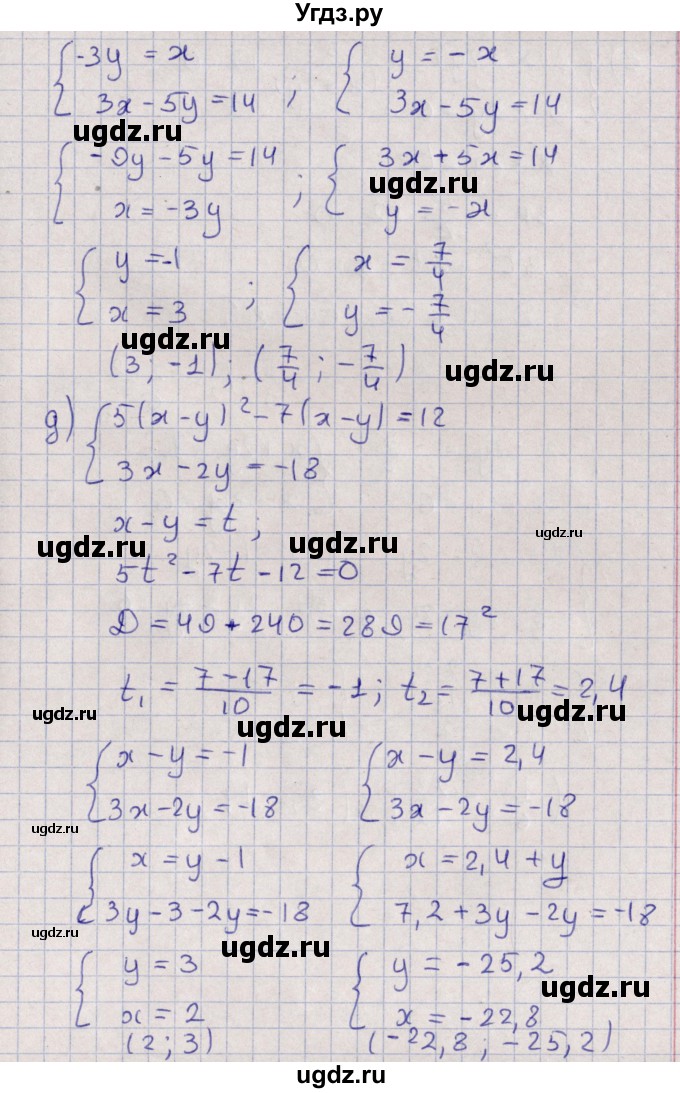 Угдз.ру
{ -3y = x ; { y = -x
{ 3x - 5y = 14 { 3x - 5y = 14
ugdz.ru
{ -9y - 5y = 14 ; { 3x + 5x = 14
ugdz.ru
{ x = -3y { y = -x
{ y = -1 ; { x = 7/4
{ x = 3 { y = -7/4
ugdz.ru
(3 ; -1) ; (7/4 ; -7/4)
ugdz.ru
д) { 5(x-y)² - 7(x-y) = 12
{ 3x - 2y = -18
x - y = t ;
ugdz.ru ugdz.ru ugdz.ru
5t² - 7t - 12 = 0
D = 49 + 240 = 289 = 17²
t₁ = (7-17)/10 = -1 ; t₂ = (7+17)/10 = 2,4
ugdz.ru ugdz.ru
{ x - y = -1 { x - y = 2,4
{ 3x - 2y = -18 { 3x - 2y = -18
ugdz.ru
{ x = y - 1 { x = 2,4 + y
{ 3y - 3 - 2y = -18 { 7,2 + 3y - 2y = -18
ugdz.ru
ugdz.ru
{ y = 3 { y = -25,2
ugdz.ru
{ x = 2 { x = -22,8
(2 ; 3) (-22,8 ; -25,2)
ugdz.ru